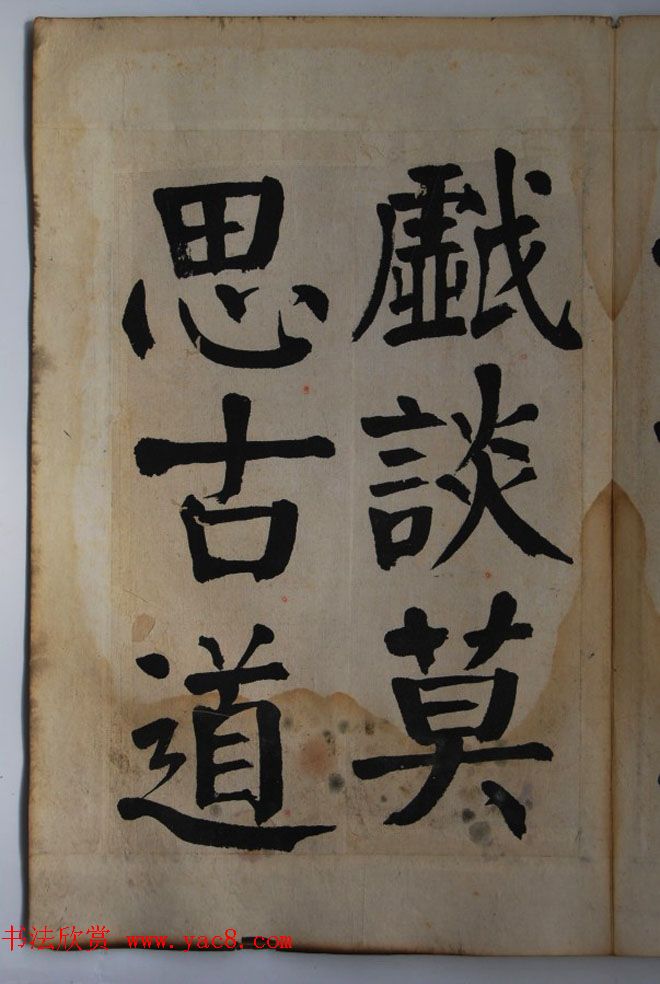 戱談莫
思古道
书法欣赏 www.yac8.com